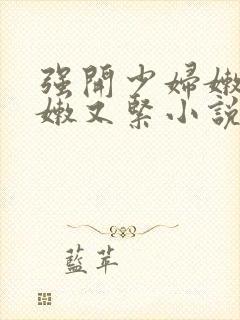 强開少婦嫩
嫩又緊小說
藍苹